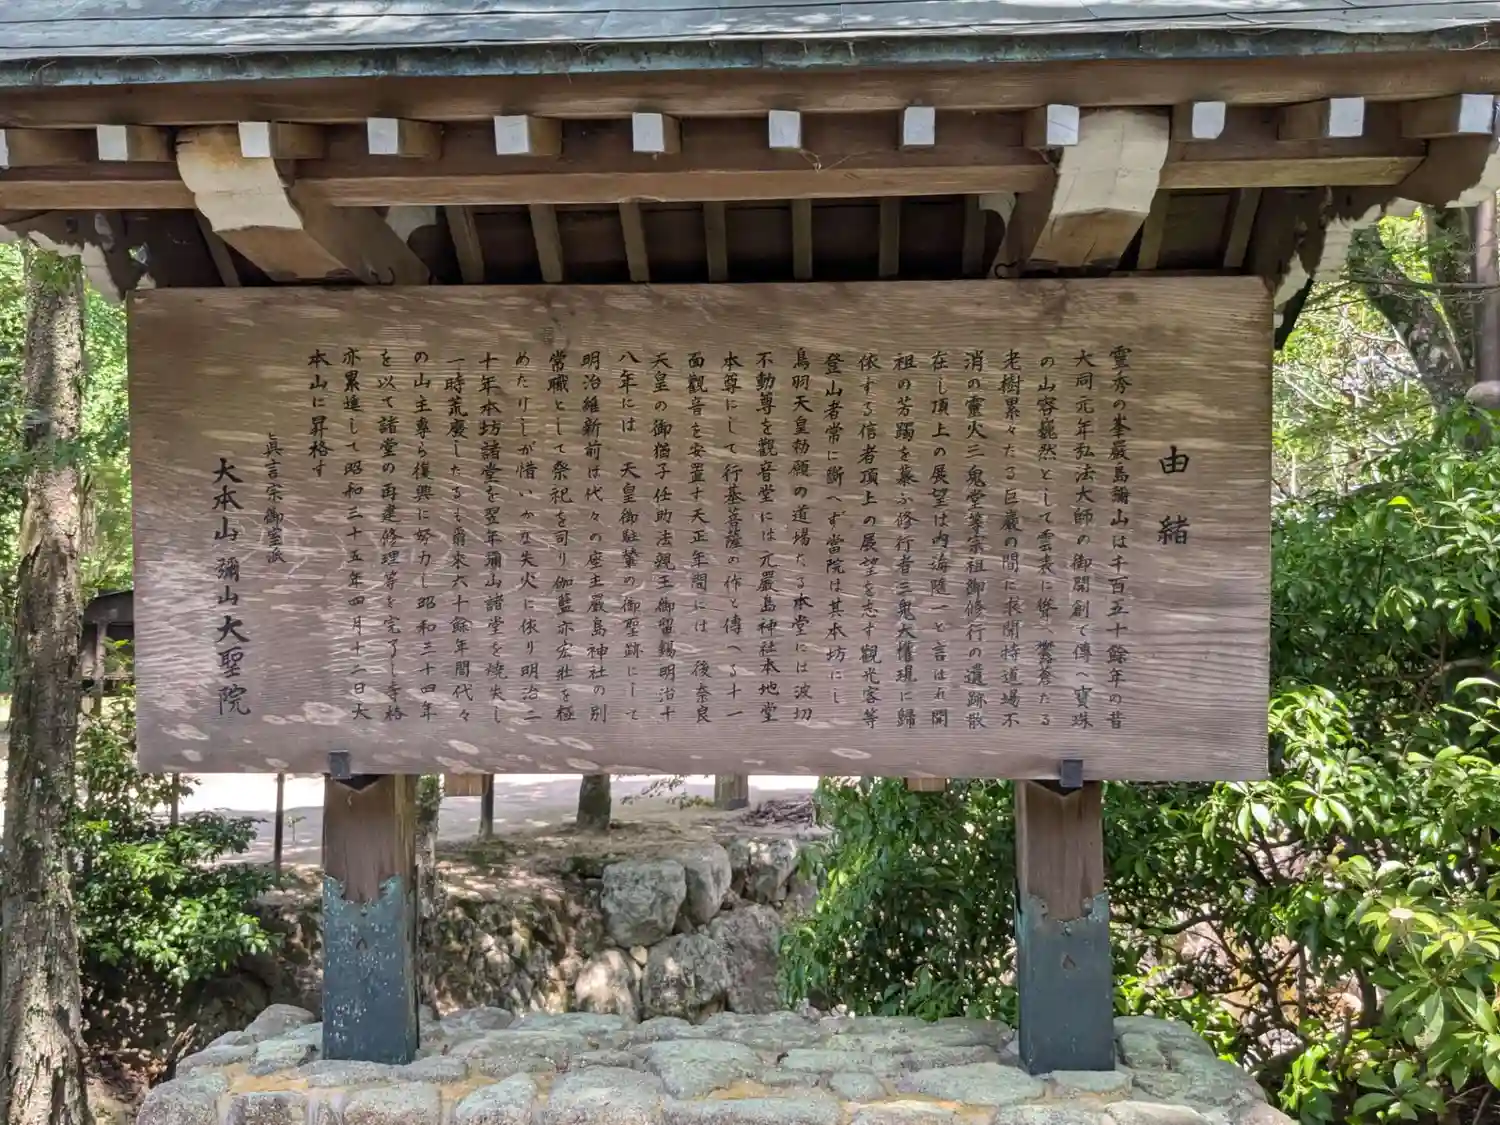 由緒
靈秀の峯嚴島彌山は千百五十餘年の昔
大同元年弘法大師の御開創て傳へ寶珠
の山容巍然として雲表に聳へ鬱蒼たる
老樹累々たる巨巖の間に求聞持道場不
消の靈火三鬼堂等宗祖御修行の遺跡散
在し頂上の展望は内海隨一と言はれ開
祖の芳躅を慕ふ修行者三鬼大権現に歸
依する信者頂上の展望を志す觀光客等
登山者常に斷へず當院は其本坊にし
鳥羽天皇勅願の道場たる本堂には波切
不動尊を觀音堂には元嚴島神社本地堂
本尊にして行基菩薩の作と傳へる十一
面觀音を安置す天正年間には 後奈良
天皇の御猶子任助法親王御留錫明治十
八年には 天皇御駐輦の御聖跡にして
明治維新前は代々の座主嚴島神社の別
當職として祭祀を司り伽藍亦宏壯を極
めたりしが惜いかな失火に依り明治二
十年本坊諸堂を翌年彌山諸堂を焼失し
一時荒廢したるも爾来六十餘年間代々
の山主專ら復興に努力し昭和三十四年
を以て諸堂の再建修理等を完了し寺格
亦累進して昭和三十五年四月十二日大
本山に昇格す
眞言宗御室派
大本山彌山大聖院